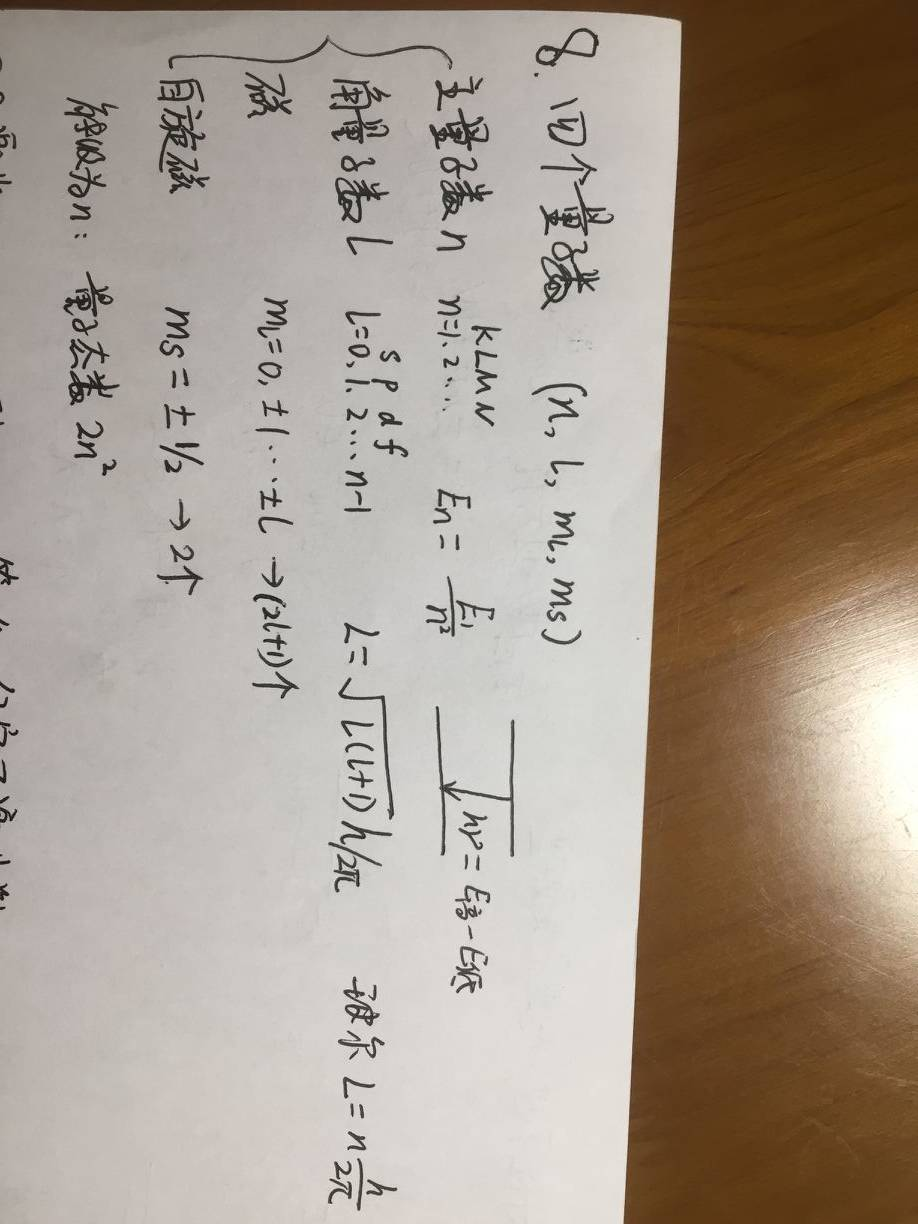 8. 四个量子数 (n, l, mₗ, mₛ)
主量子数 n n=1, 2… K L M N Eₙ = E₁/n² hν = E高 - E低
角量子数 l l=0, 1, 2…n-1 s p d f L = √(l(l+1)) h/2π 玻尔 L = n h/2π
磁 mₗ=0, ±1…±l → (2l+1)个
自旋磁 mₛ = ±1/2 → 2个
能级为n: 量子态数 2n²